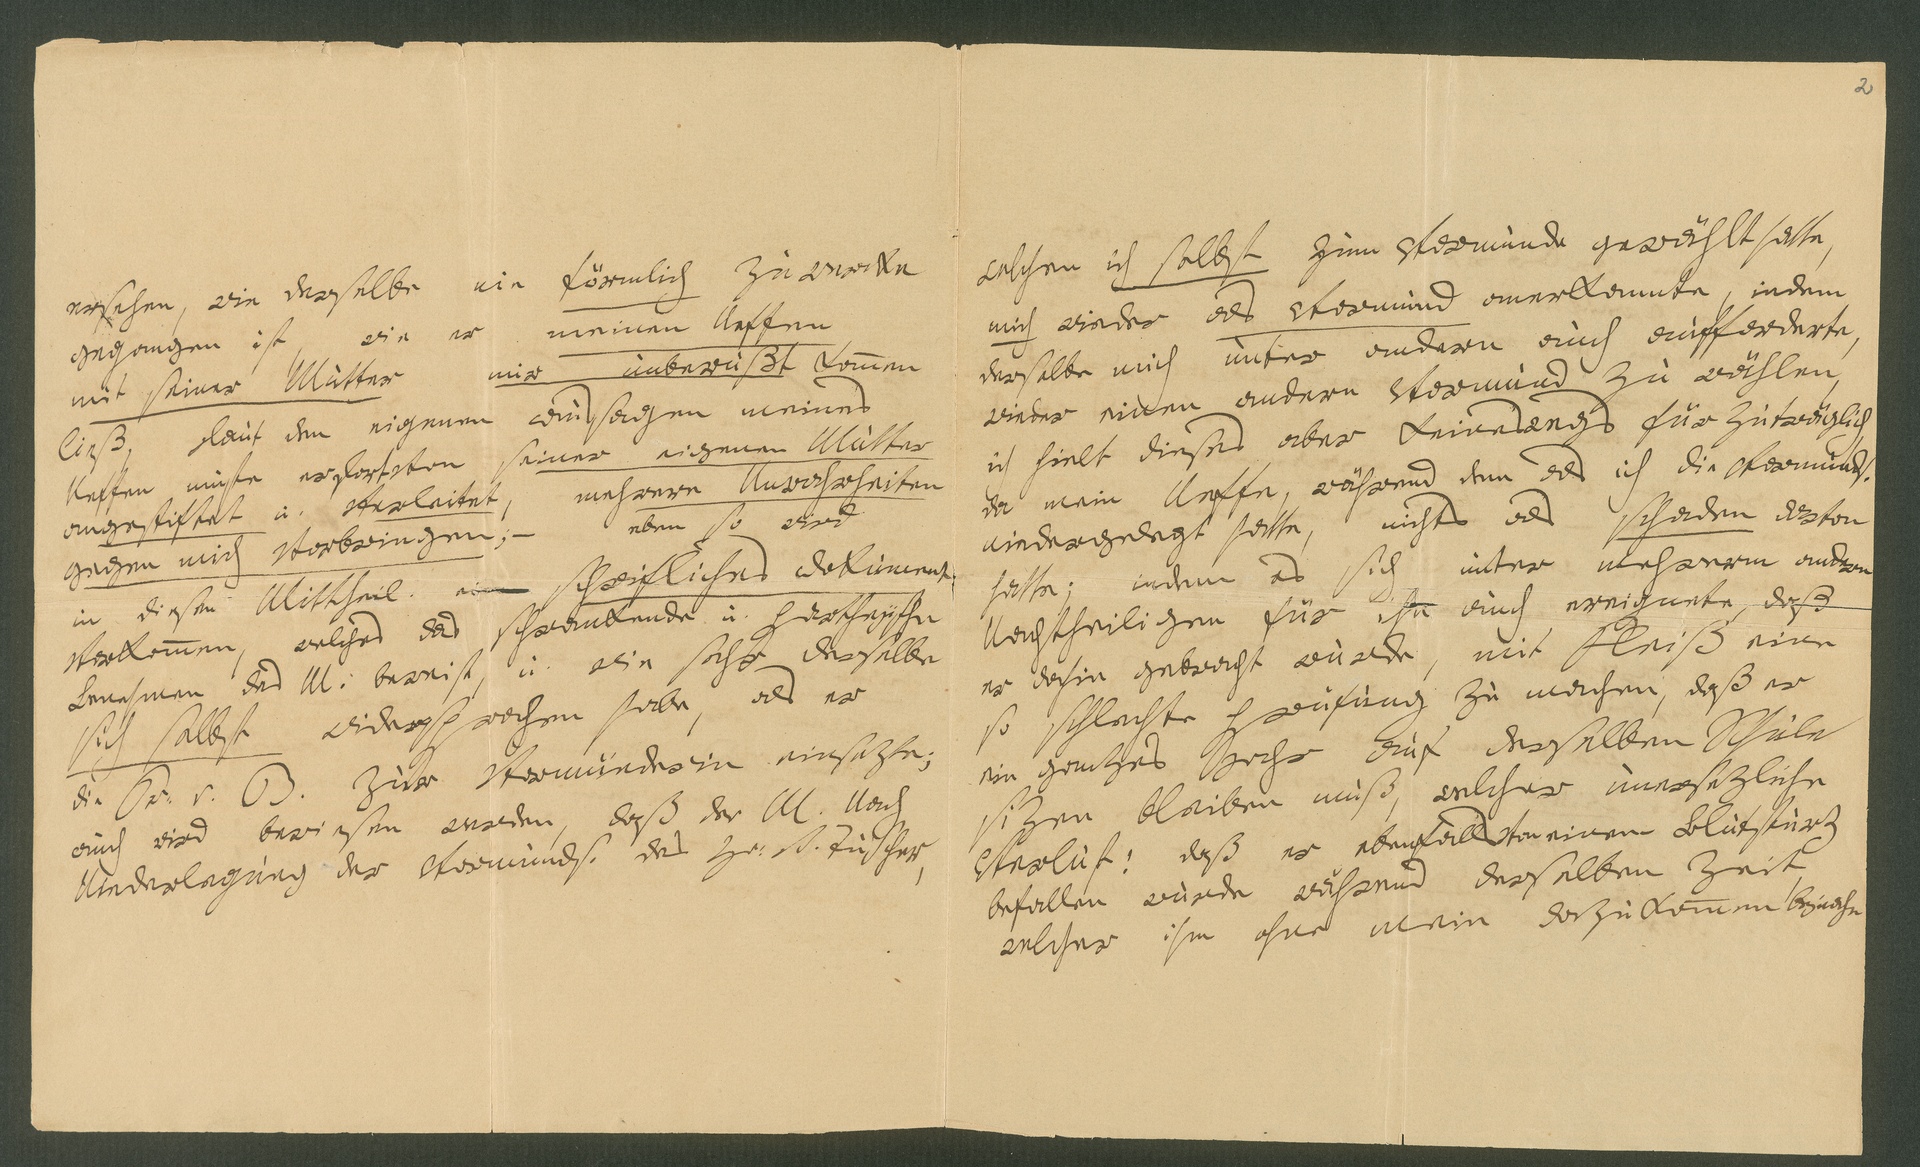 ersehen, wie derselbe nie förmlich zu werke
gegangen ist, wie er meinen Neffen
mit seiner Mutter mir unbewußt kom̅en
ließ, laut den eigenen Aussagen meines
Neffen muste er von seiner eigenen Mutter
angestiftet u. verleitet, mehrere Unwahrheiten
gegen mich vorbringen; – eben so wird
in diesen Mittheil. ein schriftliches Dokument
vorkom̅en, welches das schwankende u. partheyische
Benehmen des M: beweist, u. wie sehr derselbe
sich selbst widersprochen habe, als er
die Fr. v. B. zur Vormünderin einsetzte;
auch wird bewiesen werden, daß der M. nach
Niederlegung der Vormunds. des Hr: v. Tuscher,
2
welchen ich selbst zum Vormunde gewählt hatte,
mich wieder als Vormund anerkannte, indem
derselbe mich unter andern auch aufforderte,
wieder einen andern Vormund zu wählen,
ich hielt dieses aber keineswegs für zuträglich,
da mein Neffe, während dem als ich die Vormunds.
niedergelegt hatte, nichts als schaden davon
hatte; indem es sich unter mehrerm andern
Nachtheiligen für ihn auch ereignete, daß
er dahin gebracht wurde, mit Fleiß eine
so schlechte Prüfung zu machen, daß er
ein gantzes Jahr auf derselben Schule
sitzen bleiben muß, welcher unersetzliche
Verlust! daß er ebenfalls von einem Blutsturz
befallen wurde während derselben Zeit
welcher ihm ohne mein dazukom̅en beynahe